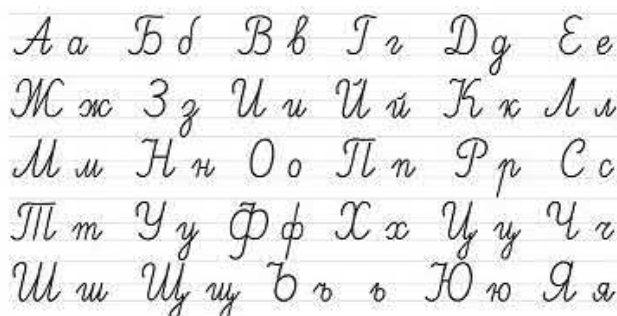 А а Б б В в Г г Д д Е е
Ж ж З з И и Й й К к Л л
М м Н н О о П п Р р С с
Т т У у Ф ф Х х Ц ц Ч ч
Ш ш Щ щ Ъ ъ ь Ю ю Я я